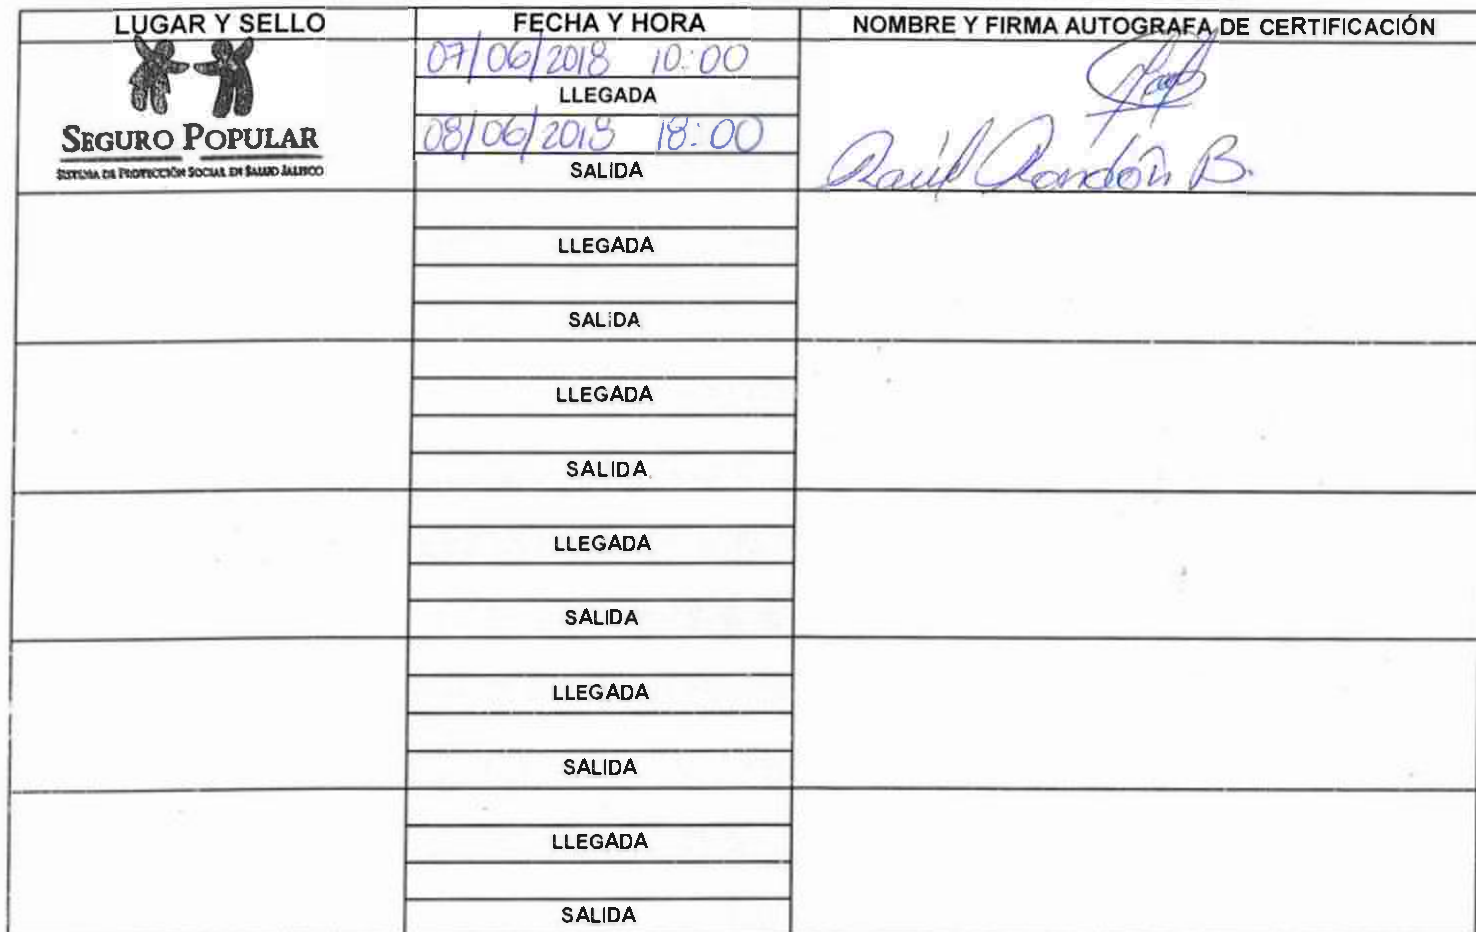 LUGAR Y SELLO FECHA Y HORA NOMBRE Y FIRMA AUTOGRAFA DE CERTIFICACIÓN
07/06/2018 10:00
LLEGADA
SEGURO POPULAR
SISTEMA DE PROTECCIÓN SOCIAL EN SALUD JALISCO
08/06/2018 18:00
SALIDA
Raúl Rondón B.
LLEGADA
SALIDA
LLEGADA
SALIDA
LLEGADA
SALIDA
LLEGADA
SALIDA
LLEGADA
SALIDA